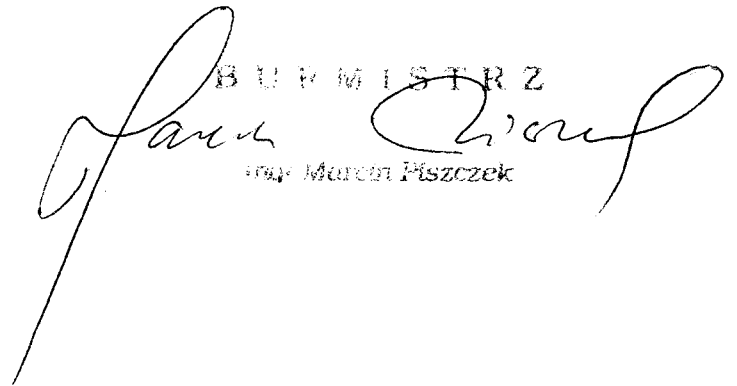 BURMISTRZ
inż. Marcin Piszczek